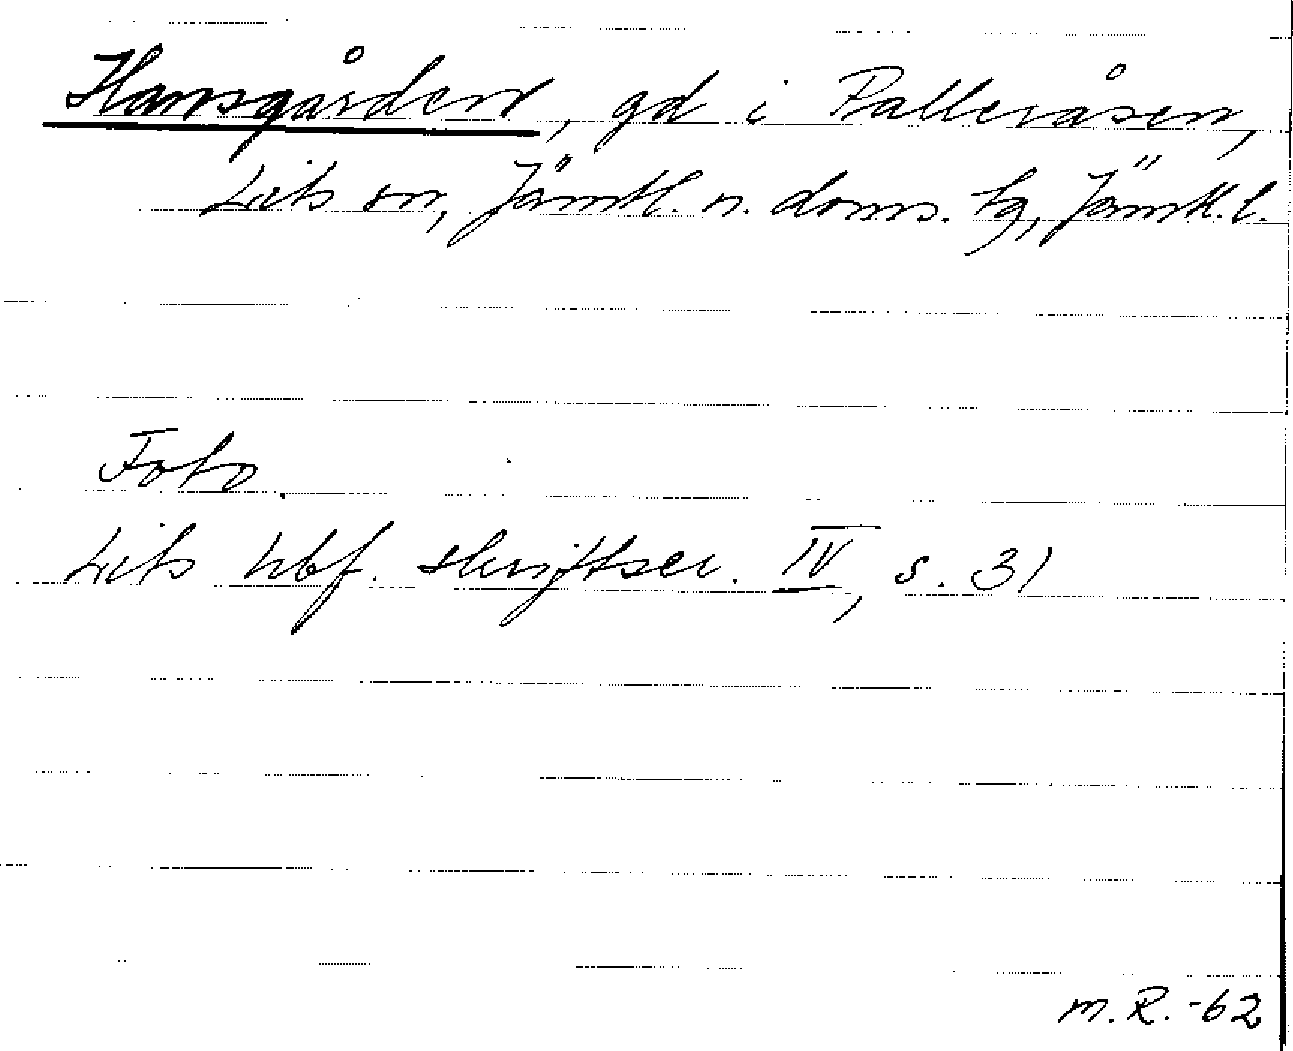 Hansgården, gd i Palleråsen,
Lits sn, Jämtl. n. doms. tg, Jämtl. l.
Foto.
Lits hbf. skriftser. IV, s. 31
M.R. -62